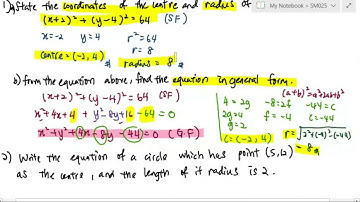 My Notebook > SM025
1) State the coordinates of the centre and radius of
(x+2)² + (y-4)² = 64 (SF)
x=-2 y=4 r²=64
r=8
centre=(-2,4) radius = 8
b) from the equation above, find the equation in general form.
(x+2)² + (y-4)² = 64 (SF)
(a+b)² = a²+2ab+b²
x²+4x+4 + y²-8y+16-64=0
4=2g -8=2f -44=c
2g=4 f=-4 c=-44
g=2
x²+y²+4x-8y-44=0 (G.F)
C=(-2,4) r=√2²+(-4)²-(-44)
= 8
2) Write the equation of a circle which has point (5,12)
as the centre, and the length of it radius is 2.